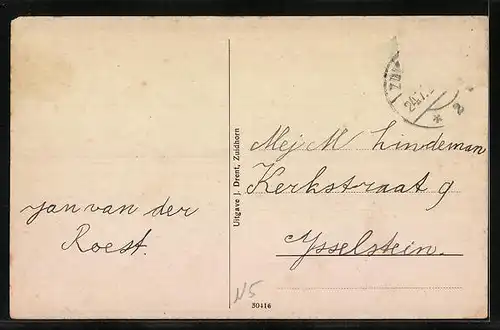 jan van der
Roest.
Uitgave J. Drent, Zuidhorn
Mej M Lindeman
Kerkstraat 9
IJsselstein.
N5
50416